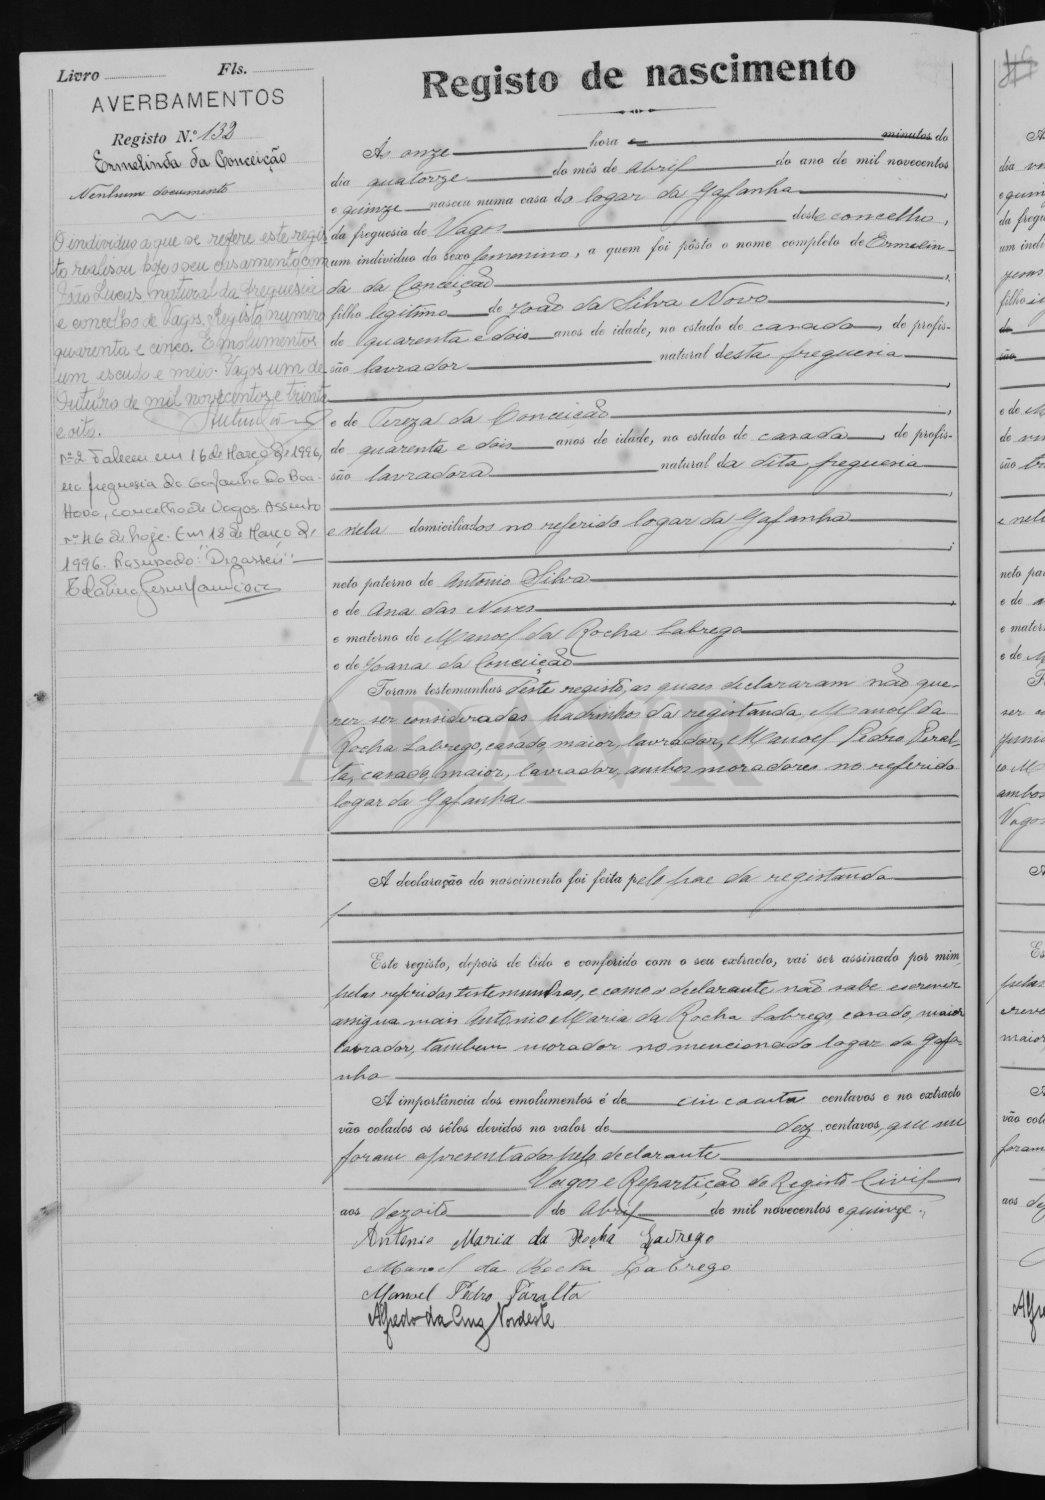 Livro Fls.
AVERBAMENTOS
Registo N.º 132
Ermelinda da Conceição
Nenhum documento
O individuo a que se refere este regis
to realisou hoje o seu casamento com
João Lucas, natural da freguesia
e concelho de Vagos. Registo numero
quarenta e cinco. Emolumentos
um escudo e meio. Vagos um de
Outubro de mil novecentos e trinta
e oito.
nº2 Faleceu em 16 de Março de 1996,
na freguesia da Gafanha da Boa-
Hora, concelho de Vagos. Assento
nº 46 de hoje. Em 18 de Março de
1996. Rasurado: "Dezasseis"
Registo de nascimento
Ás onze hora e minutos do
dia quatorze do mês de Abril do ano de mil novecentos
e quinze nasceu numa casa do logar da Gafanha,
da freguesia de Vagos deste concelho,
um individuo do sexo femenino, a quem foi pôsto o nome completo de Ermelin-
da da Conceição,
filho legitimo de João da Silva Novo,
de quarenta e dois anos de idade, no estado de casado, de profis-
são lavrador natural desta freguesia
,
e de Tereza da Conceição,
de quarenta e dois anos de idade, no estado de casada, de profis-
são lavradora natural da dita freguesia
,
e nela domiciliados no referido logar da Gafanha
;
neto paterno de Antonio Silva
e de Ana das Neves,
e materno de Manoel da Rocha Labrego
e de Joana da Conceição
Foram testemunhas deste registo, as quaes declararam não que-
rer ser considerados padrinhos da registanda, Manoel da
Rocha Labrego, casado, maior, lavrador, e Manoel Pedro Peral-
ta, casado, maior, lavrador, ambos moradores no referido
logar da Gafanha
A declaração do nascimento foi feita pelo pae da registanda
Este registo, depois de lido e conferido com o seu extracto, vai ser assinado por mim,
pelas referidas testemunhas, e como o declarante não sabe escrever
assigna mais Antonio Maria da Rocha Labrego, casado, maior
lavrador, tambem morador no mencionado logar da Gafa-
nha
A importância dos emolumentos é de cincoenta centavos e no extracto
vão colados os sêlos devidos no valor de dez centavos, que me
foram apresentados pelo declarante
Vagos e Repartição do Registo Civil
aos dezoito de Abril de mil novecentos e quinze.
Antonio Maria da Rocha Lavrego
Manoel da Rocha Labrego
Manuel Pedro Paralta
Alfredo da Cruz Nordeste
ADAVR